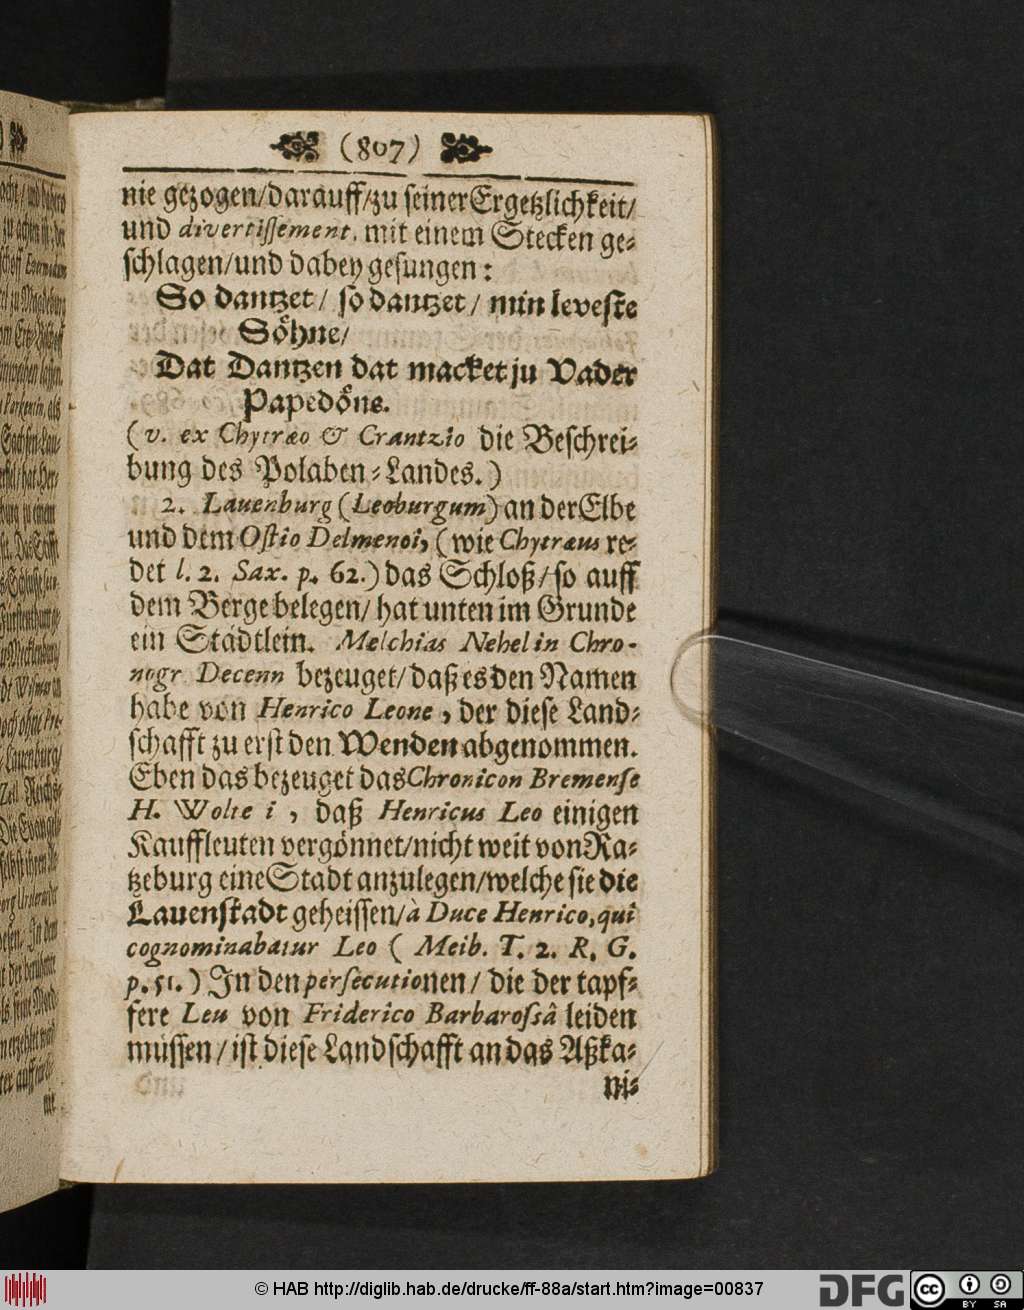 (807)
nie gezogen/darauff/zu seiner Ergetzlichkeit/
und divertissement, mit einem Stecken ge-
schlagen/und dabey gesungen:
So dantzet/ so dantzet/ min leveste
Söhne/
Dat Dantzen dat macket ju Vader
Papedöne.
(v. ex Chytræo & Crantzio die Beschrei-
bung des Polaben-Landes.)
2. Lauenburg (Leoburgum) an der Elbe
und dem Ostio Delmenoi, (wie Chytræus re-
det l. 2. Sax. p. 62.) das Schloß/so auff
dem Berge belegen/ hat unten im Grunde
ein Städtlein. Melchias Nehel in Chro-
nogr Decenn bezeuget/daß es den Namen
habe von Henrico Leone, der diese Land-
schafft zu erst den Wenden abgenommen.
Eben das bezeuget das Chronicon Bremense
H. Wolte i, daß Henricus Leo einigen
Kauffleuten vergönnet/nicht weit von Ra-
tzeburg eine Stadt anzulegen/welche sie die
Lauenstadt geheissen/à Duce Henrico, qui
cognominabatur Leo ( Meib. T. 2. R. G.
p. 51.) In den persecutionen/ die der tapf-
fere Leu von Friderico Barbarossâ leiden
müssen/ist diese Landschafft an das Aßka-
ni-
© HAB http://diglib.hab.de/drucke/ff-88a/start.htm?image=00837
DFG
cc
BY SA